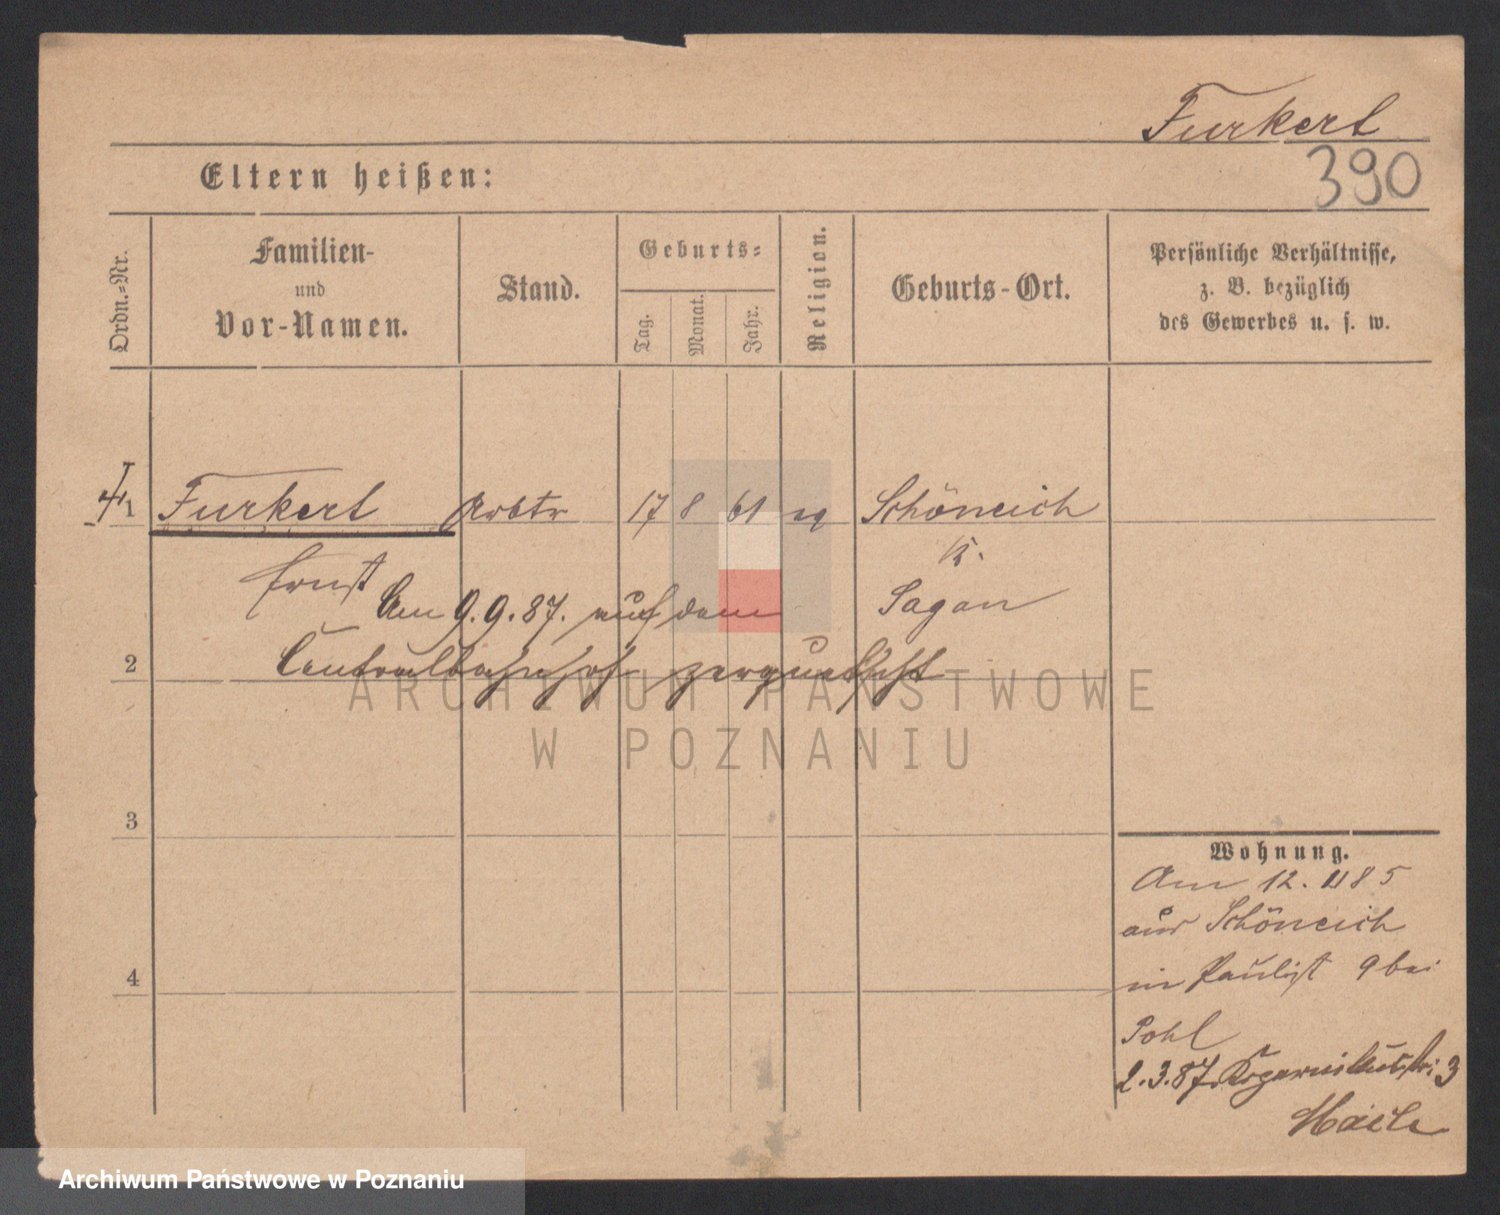 Furkert
390
Eltern heißen:
Ordn.-Nr.
Familien-
und
Vor-Namen.
Stand.
Geburts-
Tag.
Monat.
Jahr.
Religion.
Geburts-Ort.
Persönliche Verhältnisse,
z. B. bezüglich
des Gewerbes u. s. w.
1 Furkert Arbtr 17 8 61 ev Schöneich
K.
Ernst
Sagan
Am 9.9.87. auf dem
2 Centralbahnhof zerquetscht
ARCHIWUM PAŃSTWOWE
W POZNANIU
3
4
Wohnung.
Am 12. 11 85
aus Schöneich
in Paulist 9 bei
Pohl
2.3.87. 3
Archiwum Państwowe w Poznaniu